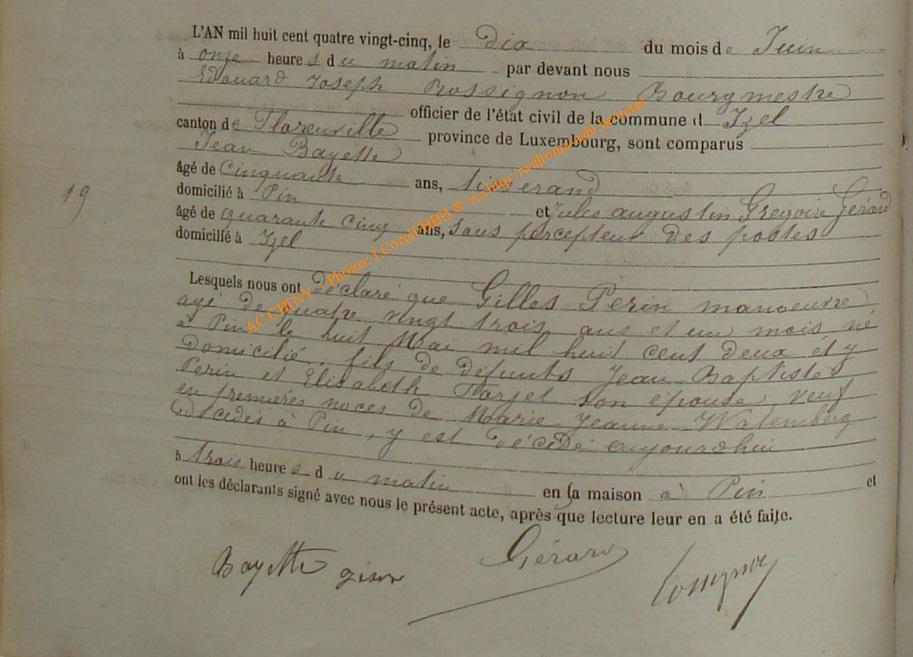 L'AN mil huit cent quatre vingt-cinq, le dix du mois de Juin
à onze heures du matin par devant nous
Edouard Joseph Rossignon Bourgmestre
officier de l'état civil de la commune d Izel
canton de Florenville province de Luxembourg, sont comparus
Jean Bayette
âgé de Cinquante ans, tisserand
domicilié à Pin et Jules augustin Grégoire Gérard
âgé de quarante cinq ans, sous percepteur des postes
domicilié à Izel
19
Lesquels nous ont déclaré que Gilles Perin manoeuvre
agé de quatre vingt trois ans et un mois né
à Pin le huit Mai mil huit cent deux et y
domicilié, fils de defunts Jean Baptiste
Perin et Elisabeth Farjet son épouse, veuf
en premières noces de Marie Jeanne Watemberg
décédés à Pin, y est décédé aujourdhui
à trois heures du matin en sa maison à Pin et
ont les déclarants signé avec nous le présent acte, après que lecture leur en a été faite.
Bayette Gérard
AC CHINY - Photos: J.Cornil ©BH ® via http://wallonia.